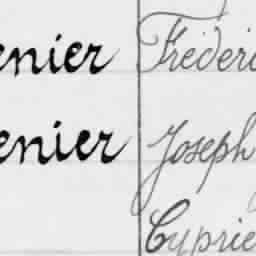 enier Fréderi
enier Joseph
Cyprie